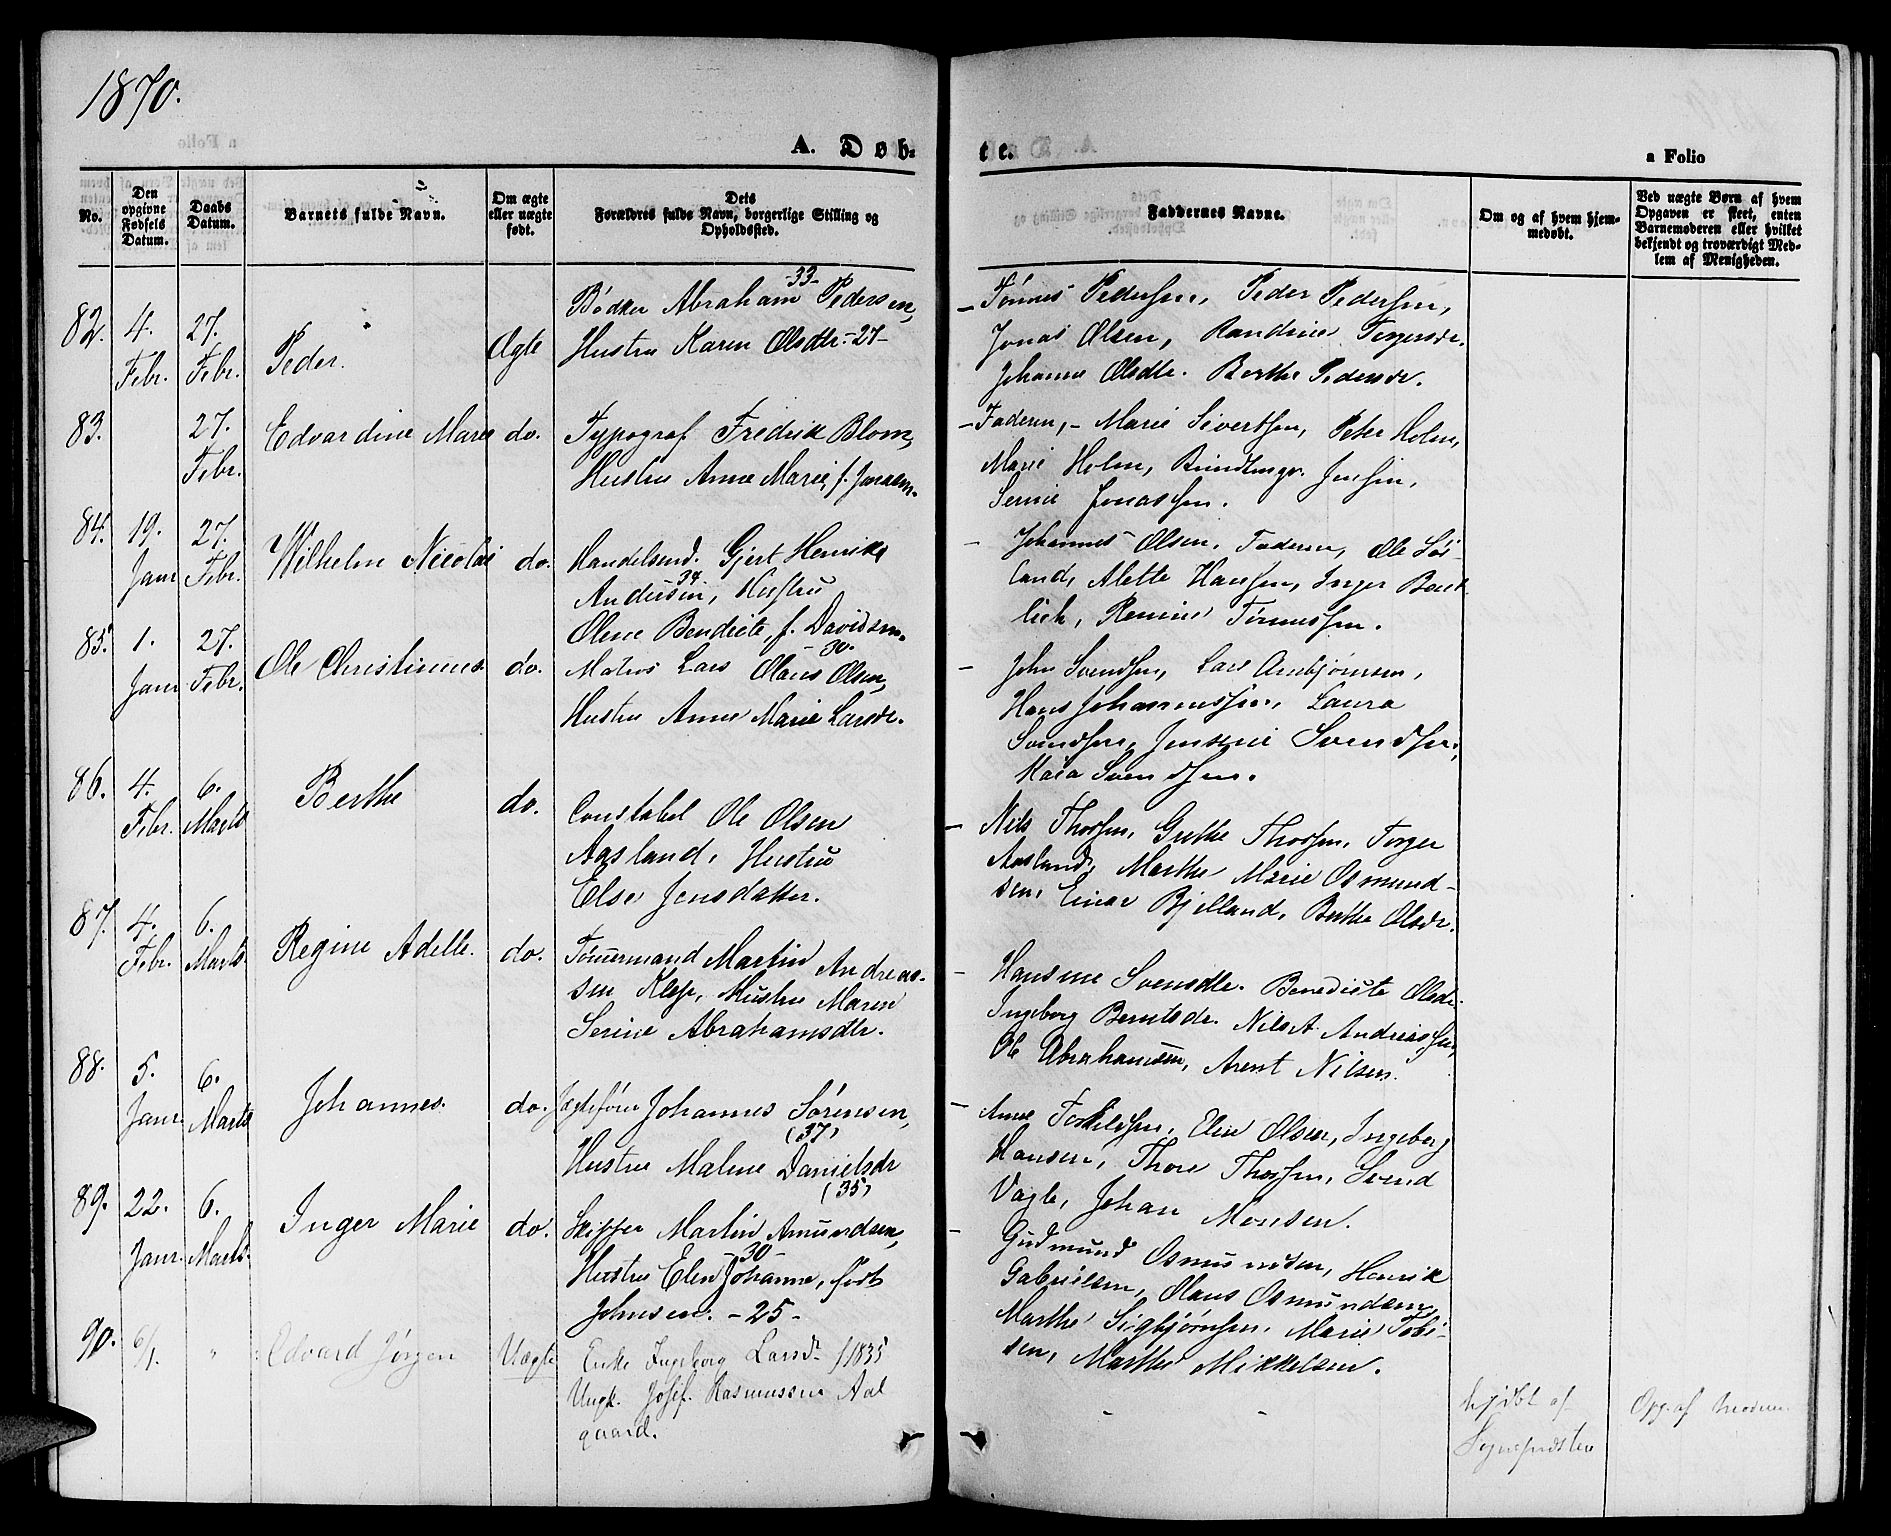 1870.
A. Døb-
te.
a Folio
No.
Den opgivne Fødsels Datum.
Daabs Datum.
Barnets fulde Navn.
Om ægte eller uægte født.
Dets Forældres fulde Navn, borgerlige Stilling og Opholdssted.
Faddernes Navne.
Om og af hvem hjem-
medøbt.
Ved uægte Børn af hvem
Opgaven er skeet, enten
Barnemoderen eller hvilket
bekjendt og troværdigt Med-
lem af Menigheden.
82. 4. Febr. 27. Febr. Peder. Ægte
Bødker Abraham Pedersen, -33-
Hustru Karen Olsdtr. -27-
- Tønnes Pedersen, Peder Pedersen,
Jonas Olsen, Randine Torgersdr.
Johanne Olsdtr. Berthe Pedersdr.
83. 27. Febr. Edvardine Marie do.
Typograf Fredrik Blom,
Hustru Anne Marie, f. Jonasen.
- Faderen, - Marie Sivertsen, Peter Holm,
Marie Holm, Jensen,
Serine Jonassen.
84. 19. Janr 27. Febr. Wilhelm Nicolai do.
Handelsmd. Gjert Henrik
Andersen, Hustru 34
Olene Bendicte, f. Davidsen. -30.
- Johannes Olsen, Faderen, Ole
land, Alette Hansen, Inger
lich, Tønnessen.
85. 1. Janr 27. Febr. Ole Christinus. do.
Matros Lars Olaus Olsen,
Hustru Anne Marie Larsdr.
- John Svendsen, Lars Ambjørnsen,
Hans Johannessen, Laura
Svendsen, Jensine Svendsen,
Svendsen.
86. 4. Febr. 6. Marts Berthe do.
Constabel Ole Olsen
Aasland, Hustru
Else Jensdatter.
- Nils Thorsen, Grethe Thorsen, Torger
Aasland, Marthe Marie Osmund-
sen, Einar Bjelland, Berthe Olsdr.
87. 4. Febr. 6. Marts. Regine Adelle. do.
Tømermand Martin Andreas-
sen Klep, Hustru Maren
Serine Abrahamsdtr.
- Hansine Svensdtr. Benedicte Olsdr.
Ingeborg Berntsdr. Nils A. Andreassen,
Ole Abrahamsen, Arent Nilsen.
88. 5. Janr. 6. Marts Johannes. do.
Jægtefører Johannes Sørensen, (37)
Hustru Maline Danielsdr (35)
- Anne Torkildsen, Eline Olsen, Ingeborg
Hansen, Thore Thorsen, Svend
Vagle, Johan Monsen.
89. 22. Janr. 6. Marts. Inger Marie do.
Skipper Martin Amundsen, -30-
Hustru Elen Johanne, født
Johnsen. -25-
- Gudmund Osmundsen, Henrik
Gabrielsen, Olaus Osmundsen,
Marthe Sigbjørnsen, Marie Tobi-
sen, Marthe Mikkelsen.
90. 6/1. " Edvard Jørgen Uægte
Enke Ingeborg Larsdr f 1835
Ungk. Josef Rasmussen Aal
gaard.
- -
hjdbt af
Sognepræsten
Opg. af Moderen